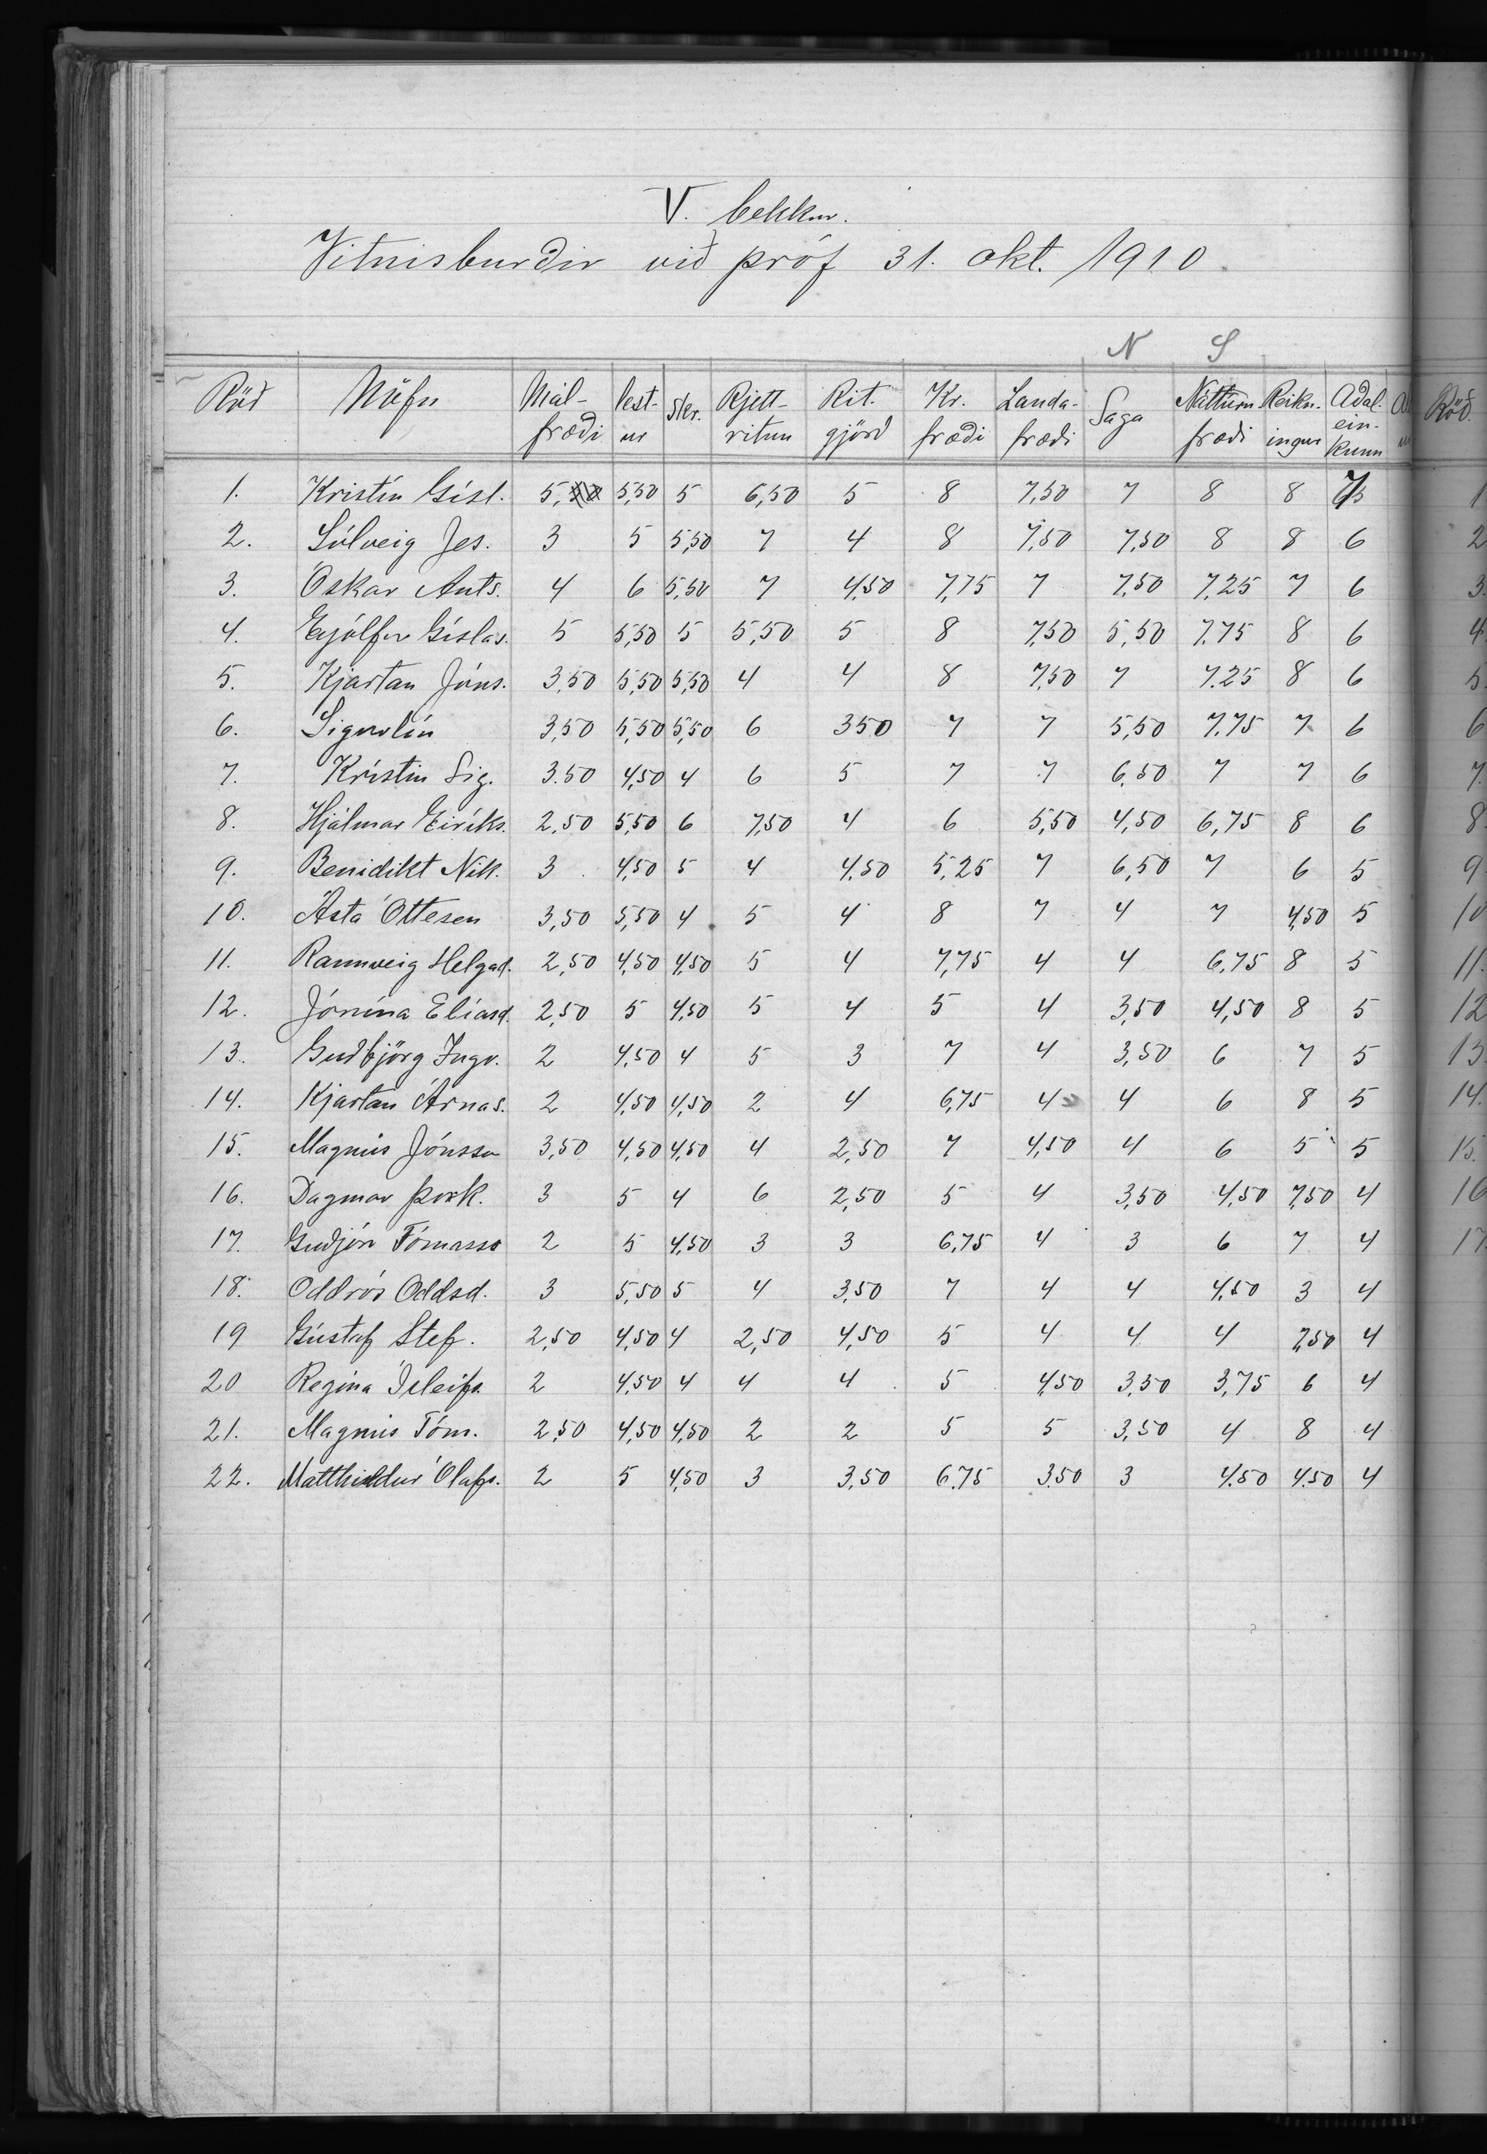 V. bekkur.
Vitnisburðir við próf 31. okt. 1910.
N S
Röð Nöfn Mál-fræði lest-ur skr. Rjett-ritun Rit.gjörð Kr.fræði Landa-fræði Saga Náttúrufræði Reikn.ingur Aðal-ein-kunn
1. Kristín Gísl. 5, 5,50 5 6,50 5 8 7,50 7 8 8
2. Sólveig Jes. 3 5 5,50 7 4 8 7,50 7,50 8 8 6
3. Óskar Ants. 4 6 5,50 7 4,50 7,75 7 7,50 7,25 7 6
4. Eyjólfur Gíslas. 5 5,50 5 5,50 5 8 7,50 5,50 7.75 8 6
5. Kjartan Jóns. 3,50 5,50 5,50 4 4 8 7,50 7 7.25 8 6
6. Sigurlín 3,50 5,50 5,50 6 350 7 7 5,50 7.75 7 6
7. Kristín Sig. 3.50 4,50 4 6 5 7 7 6,50 7 7 6
8. Hjálmar Eiríks. 2,50 5,50 6 7,50 4 6 5,50 4,50 6,75 8 6
9. Benidikt Nik. 3 4,50 5 4 4,50 5,25 7 6,50 7 6 5
10. Ásta Ottesen 3,50 5,50 4 5 4 8 7 4 7 4,50 5
11. Rannveig Helgad. 2,50 4,50 4,50 5 4 7,75 4 4 6,75 8 5
12. Jónína Elíasd. 2,50 5 4,50 5 4 5 4 3,50 4,50 8 5
13. Guðbjörg Ingv. 2 4,50 4 5 3 7 4 3,50 6 7 5
14. Kjartan Árnas. 2 4,50 4,50 2 4 6,75 4 4 6 8 5
15. Magnús Jónsso 3,50 4,50 4,50 4 2,50 7 4,50 4 6 5 5
16. Dagmar Þork. 3 5 4 6 2,50 5 4 3,50 4,50 7,50 4
17. Guðjón Tómasso 2 5 4,50 3 3 6,75 4 3 6 7 4
18. Oddrós Oddsd. 3 5,50 5 4 3,50 7 4 4 4,50 3 4
19 Gústaf Stef. 2,50 4,50 4 2,50 4,50 5 4 4 4 7,50 4
20 Regína Ísleifs. 2 4,50 4 4 4 5 4,50 3,50 3,75 6 4
21. Magnús Tóm. 2,50 4,50 4,50 2 2 5 5 3,50 4 8 4
22. Matthildur Ólafs. 2 5 4,50 3 3,50 6.75 3.50 3 4.50 4.50 4
Röð
1
2
3.
4
5.
6
7.
8.
9.
10
11.
12
13.
14.
15.
16
17.